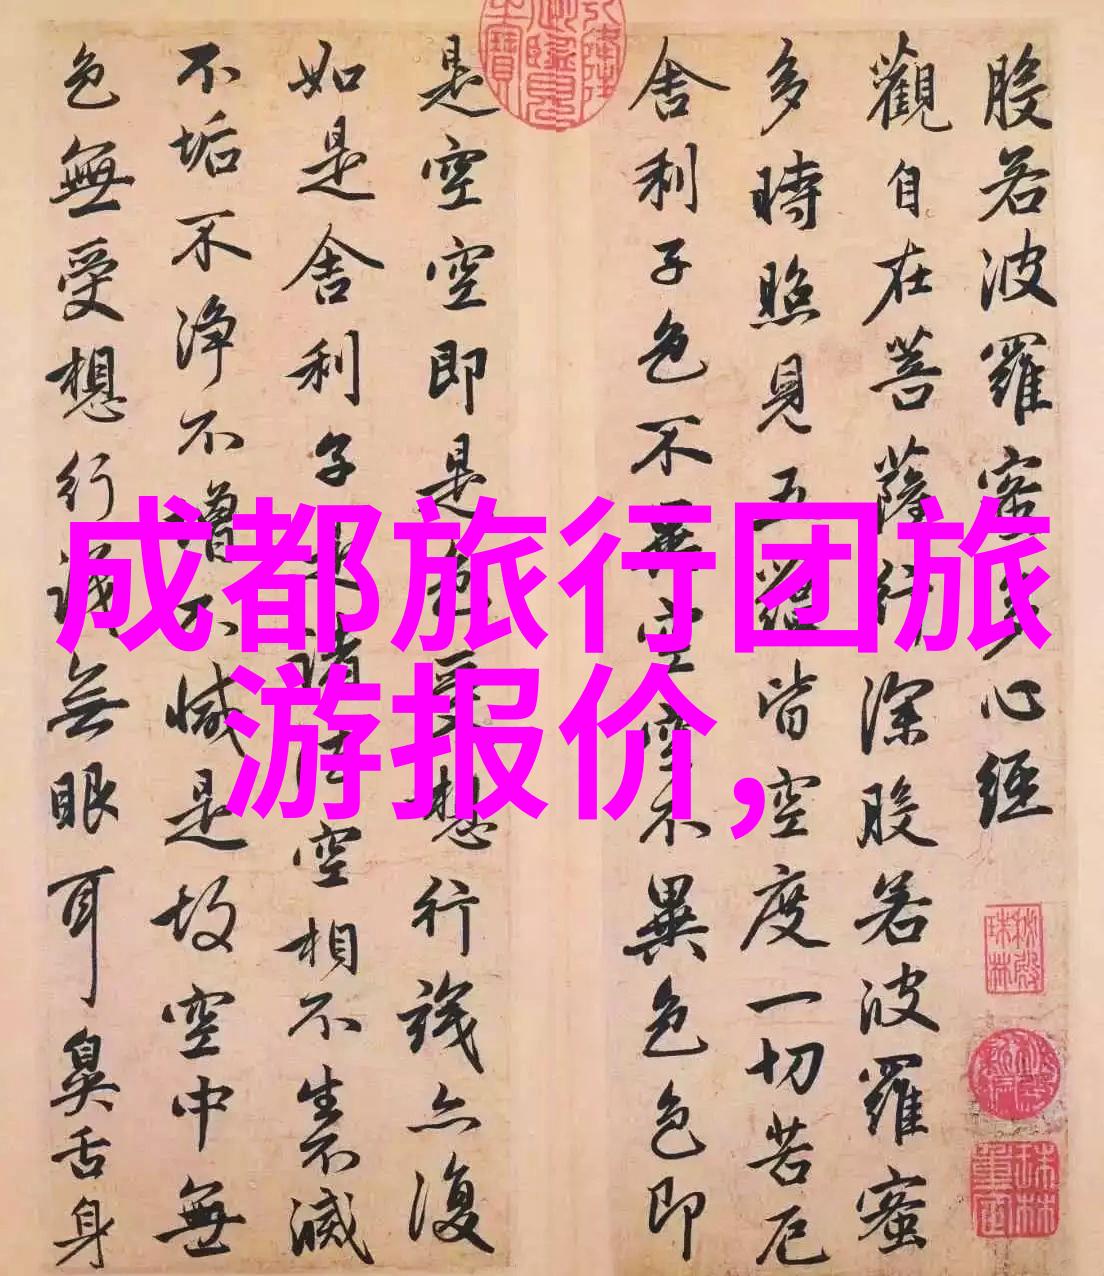 般若波羅蜜多心經
觀自在菩薩行深般若波羅蜜
多時照見五蘊皆空度一切苦厄
舍利子色不異空空不異色色即
是空空即是色受想行識亦復
如是舍利子是諸法空相不生不滅
不垢不淨不增不減是故空中無
色無受想行識無眼耳鼻舌身
成都旅行团旅
游报价,